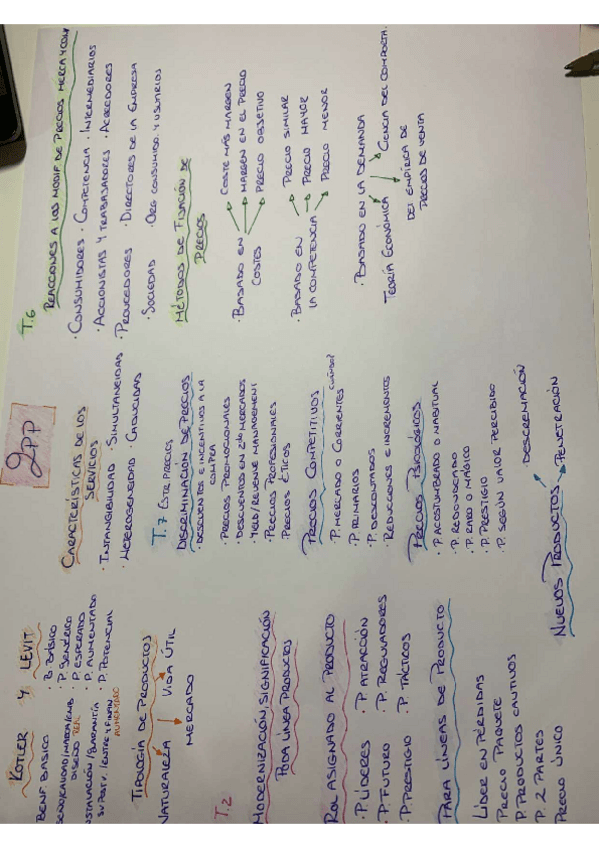 2PP
KOTLER Y LEVIT
BENF BÁSICO
· B. BÁSICO
· P. GENÉRICO
DISEÑO REAL
· P. ESPERADO
· P. AUMENTADO
· P. POTENCIAL
AUMENTADO
TIPOLOGÍA DE PRODUCTOS
NATURALEZA VIDA ÚTIL
MERCADO
T.2
MODERNIZACIÓN, SIGNIFICACIÓN
PODA LÍNEA PRODUCTOS
ROL ASIGNADO AL PRODUCTO
· P. LÍDERES · P. ATRACCIÓN
· P. FUTURO · P. REGULADORES
· P. PRESTIGIO · P. TÁCTICOS
PARA LÍNEAS DE PRODUCTO
LÍDER EN PÉRDIDAS
PRECIO PAQUETE
P. PRODUCTOS CAUTIVOS
P. 2 PARTES
PRECIO ÚNICO
CARACTERÍSTICAS DE LOS
SERVICIOS
· INTANGIBILIDAD · SIMULTANEIDAD
· HETEROGENEIDAD · CADUCIDAD
T.7 ESTR PRECIOS
DISCRIMINACIÓN DE PRECIOS
· DESCUENTOS E INCENTIVOS A LA
COMPRA
· PRECIOS PROMOCIONALES
· DESCUENTOS EN 2º MERCADOS
· YIELD/REVENUE MANAGEMENT
· PRECIOS PROFESIONALES
PRECIOS ÉTICOS
PRECIOS COMPETITIVOS
CUÁNDO?
· P. MERCADO O CORRIENTES
· P. PRIMARIOS
· P. DESCONTADOS
· REDUCCIONES E INCREMENTOS
PRECIOS PSICOLÓGICOS
· P. ACOSTUMBRADO O HABITUAL
· P. REDONDEADO
· P. RARO O MÁGICO
· P. PRESTIGIO
· P. SEGÚN VALOR PERCIBIDO
NUEVOS PRODUCTOS DESCREMACIÓN
PENETRACIÓN
T.6
REACCIONES A LOS MODIF DE PRECIOS
· CONSUMIDORES · COMPETENCIA · INTERMEDIARIOS
· ACCIONISTAS Y TRABAJADORES · ACREEDORES
· PROVEEDORES · DIRECTORES DE LA EMPRESA
· SOCIEDAD · ORG CONSUMID. Y USUARIOS
MÉTODOS DE FIJACIÓN DE
PRECIOS
· BASADO EN COSTES
COSTE MÁS MARGEN
MARGEN EN EL PRECIO
PRECIO OBJETIVO
· BASADO EN
LA COMPETENCIA
PRECIO SIMILAR
PRECIO MAYOR
PRECIO MENOR
· BASADO EN LA DEMANDA
TEORÍA ECONÓMICA CIENCIA DEL COMPORTA.
EMPÍRICA DE
PRECIOS DE VENTA